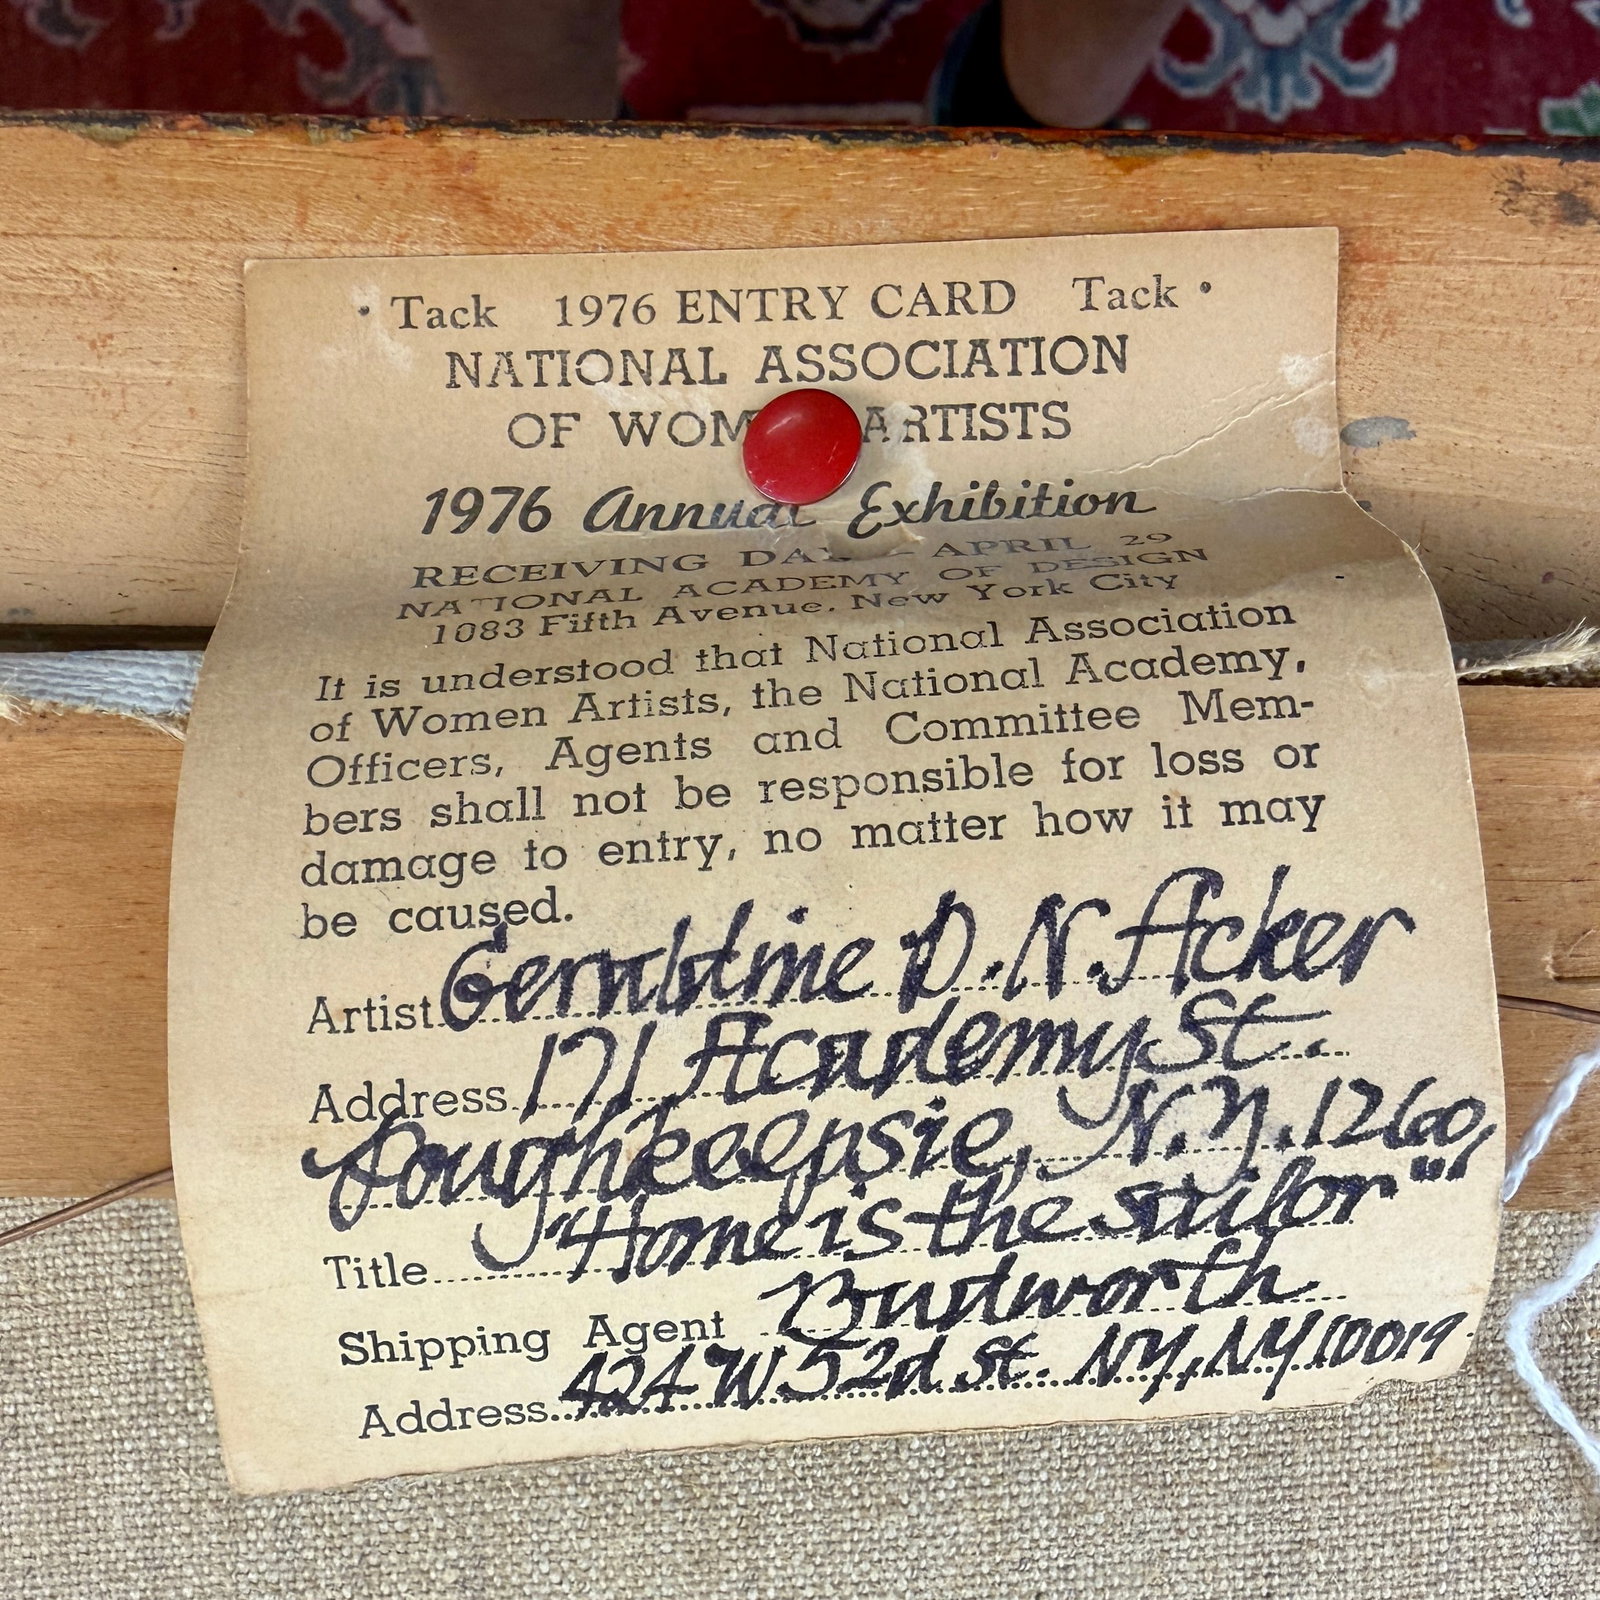 • Tack 1976 ENTRY CARD Tack •
NATIONAL ASSOCIATION
OF WOM ARTISTS
1976 Annual Exhibition
RECEIVING DAY — APRIL 29
NATIONAL ACADEMY OF DESIGN
1083 Fifth Avenue, New York City
It is understood that National Association
of Women Artists, the National Academy,
Officers, Agents and Committee Mem-
bers shall not be responsible for loss or
damage to entry, no matter how it may
be caused.
Artist Geraldine D. N. Acker
Address 171 Academy St.
Poughkeepsie, N.Y. 12601
Title "Home is the sailor"
Shipping Agent Budworth
Address 424 W 52d St. NY, NY 10019